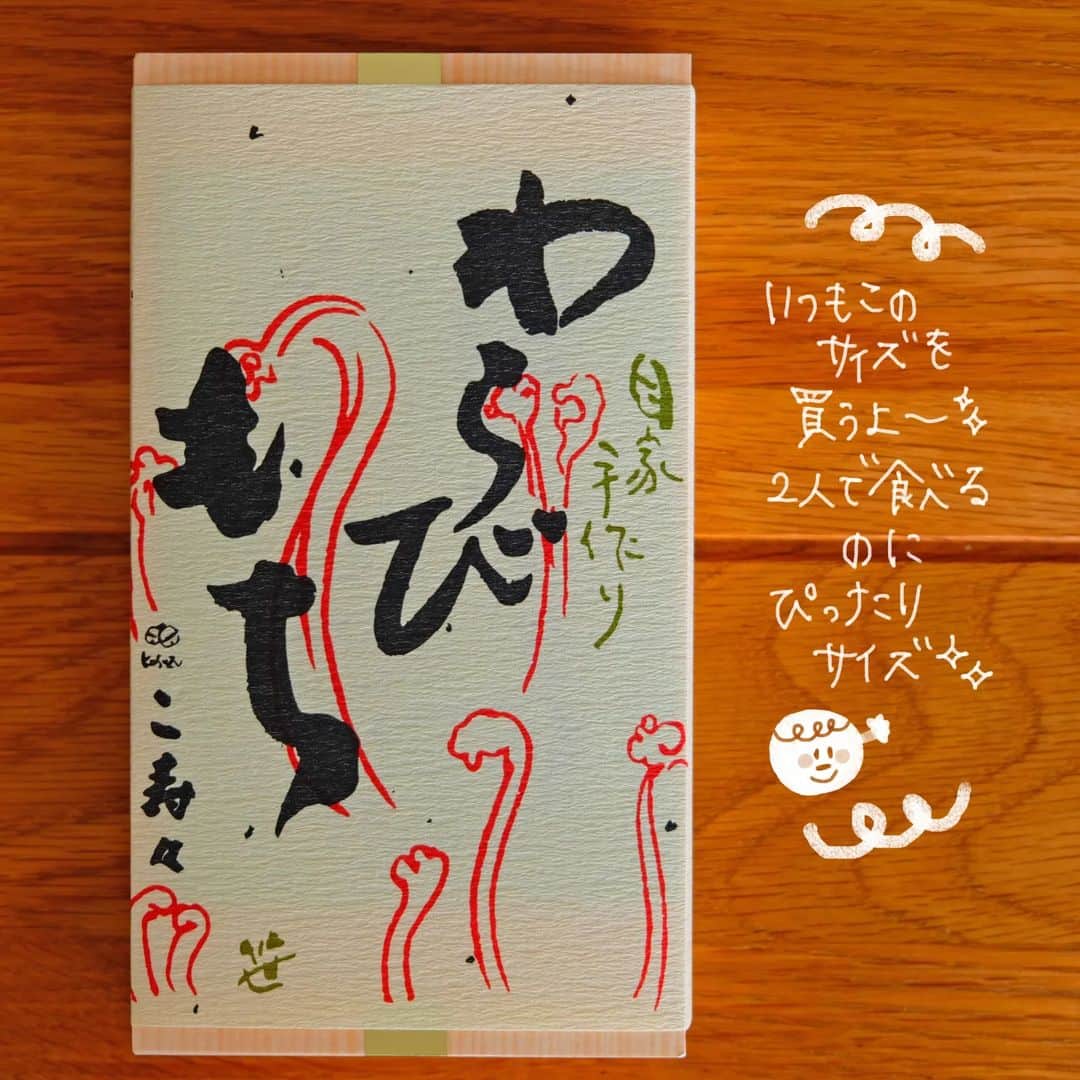 わらび
もち
自家
手作り
こ寿々
笹
いつもこの
サイズを
買うよ〜
2人で食べる
のに
ぴったり
サイズ